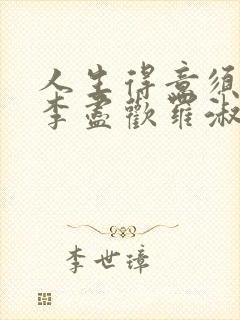 人生得意须
李盡歡羅淑
李世璋